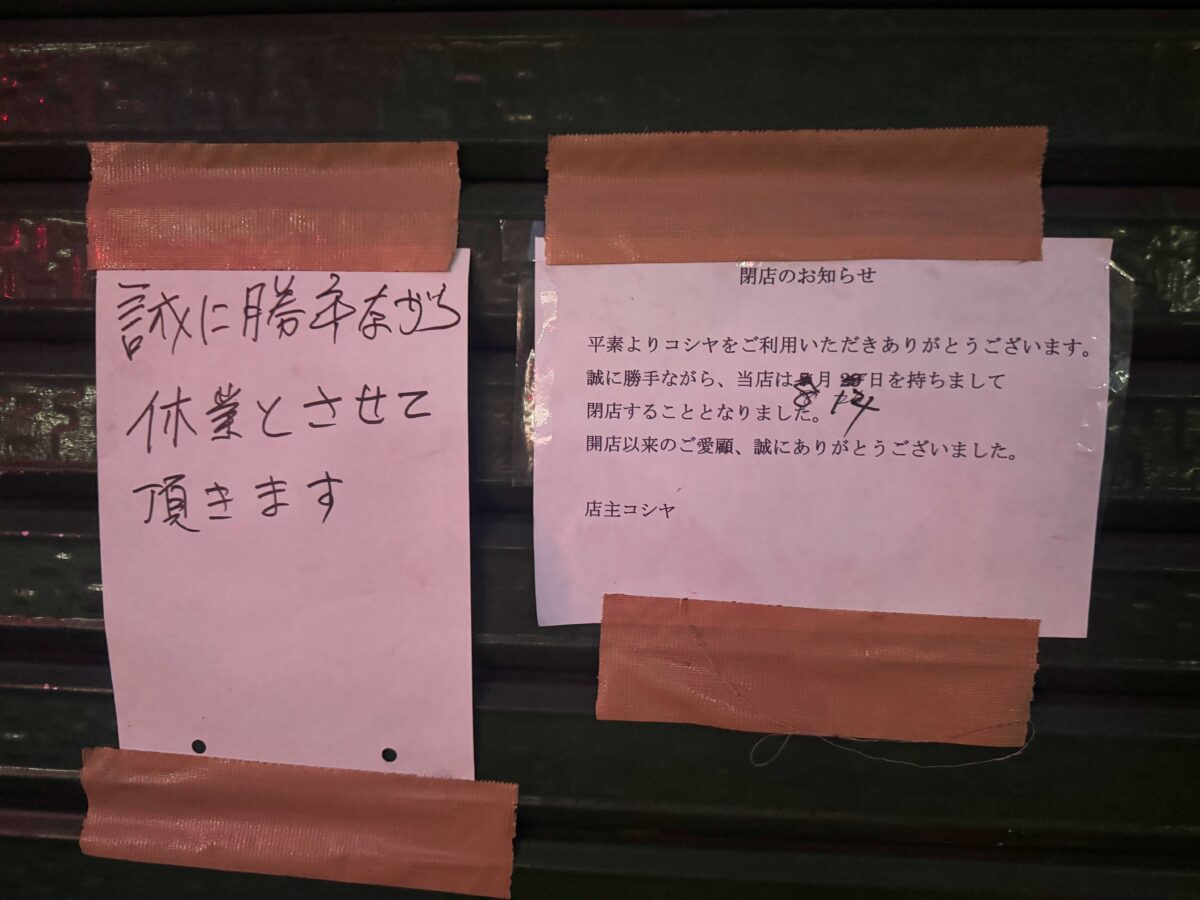 誠に勝手ながら
休業とさせて
頂きます
閉店のお知らせ
平素よりコシヤをご利用いただきありがとうございます。
誠に勝手ながら、当店は8月 日を持ちまして
閉店することとなりました。
開店以来のご愛顧、誠にありがとうございました。
店主コシヤ